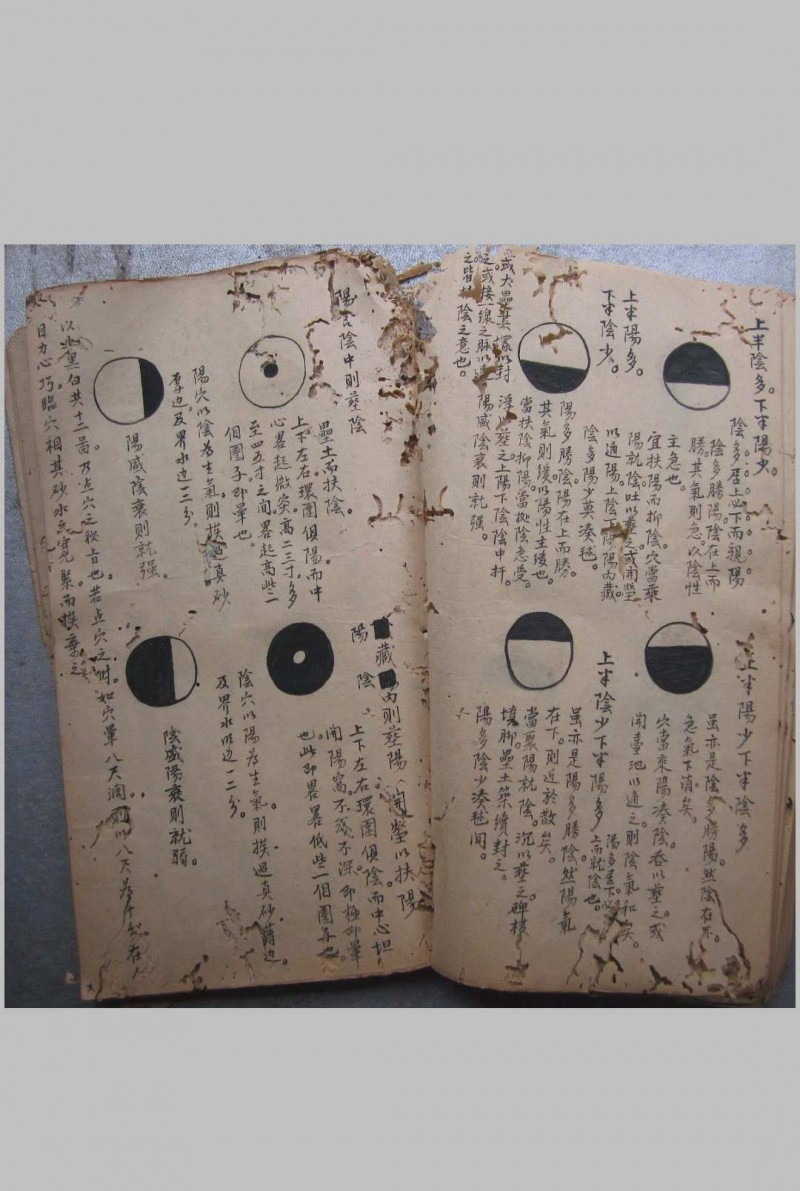 上半陰多。下半陽少。
陰多居上必下而親陽
陰多勝陽。陰在上而
勝。其氣則急。以陰性
主急也。
宜扶陽而抑陰。穴當乘
陽就陰。吐以塟之。或開塋
以通陽。上陰下陽陽內藏
陰多陽少莫湊毬。
上半陽多。
下半陰少。
陽多勝陰。陽在上而勝。
其氣則緩。以陽性主緩也。
當扶陰抑陽。當挨陰急受。
浮以塟之。上陽下陰陰中扦。
陽盛陰衰則就强。
或大壘其塚以對
之。或接一線之脉以
之皆扶陰之意也。
上半陽少下半陰多
雖亦是陰多勝陽。然陰在下。
急氣下消矣。
穴當來陽湊陰。吞以塟之。或
開臺池以通之。則陰氣和矣。
陽多居下必
上而就陰也。
上半陰少下半陽多
雖亦是陽多勝陰。然陽氣
在下。則近於散矣。
當襲陽就陰。沉以塟之。
填脚壘土築續對之。
陽多陰少湊毬间。
陽含陰中則塟陰
壘土而扶陰。
上下左右環圍俱陽。而中
心畧起微突。高二三寸。多
至四五寸之间。畧起高些二
個圈子。即暈也。
陽穴以陰為生氣。則挨過真砂
厚边。及界水边一二分。
陽盛陰衰則就强。
以
黑白共十二啚。乃点穴之秘旨也。若点穴之时。如穴暈八尺濶。則以八尺
目力心巧。臨穴相其砂水
聚而挨塟之
藏
內則塟陽。開塋以扶陽
陽陰
上下左右環圍俱陰。而中心坦。
開陽窩。不淺不深。即極即暈
也。此即畧畧低些二個圈子也。
陰穴以陽為生氣。則挨過真砂薄边。
及界水边一二分。
陰盛陽衰則就弱。